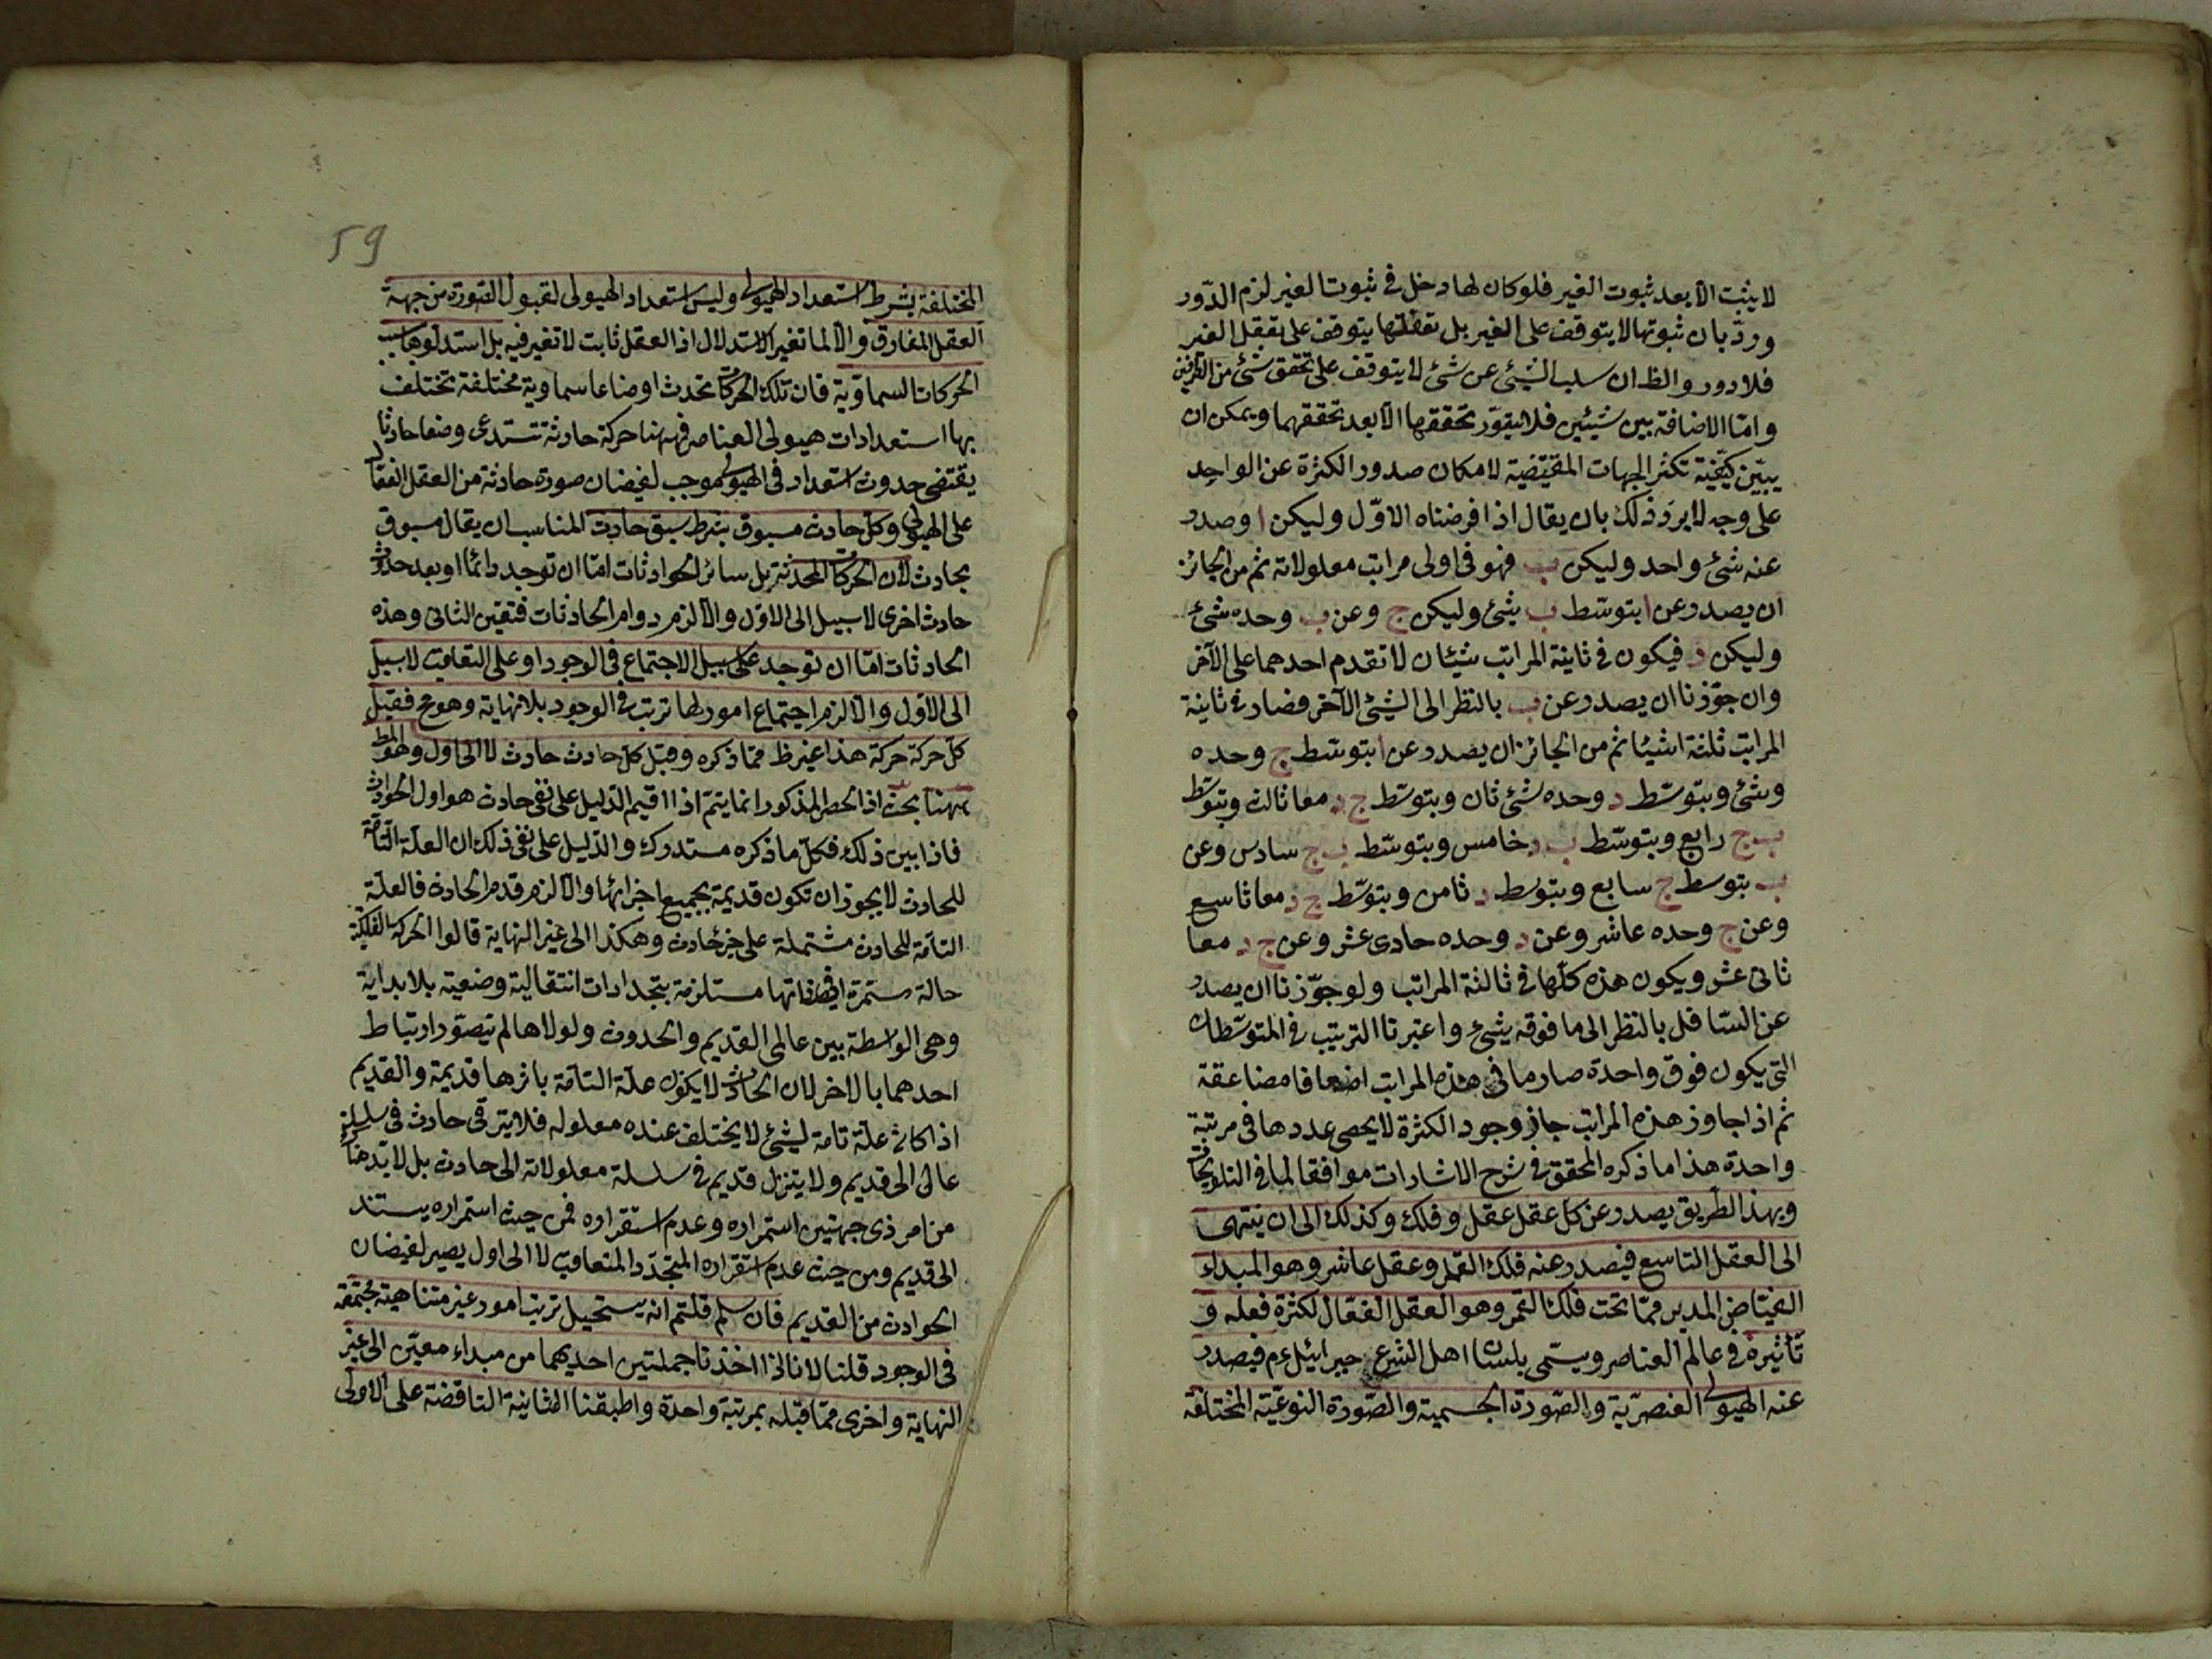 لا يثبت الا بعد ثبوت الغير فلو كان لها دخل في ثبوت الغير لزم الدّور
وردّ بان ثبوتها لا يتوقف على الغير بل تعقلها يتوقف على تعقل الغير
فلا دور والظ ان سلب الشئ عن شئ لا يتوقف على تحقق شئ من الطرفين
وامّا الاضافة بين شيئين فلا يتصوّر تحققها الا بعد تحققهما ويمكن ان
يبيّن كيفيّة تكثر الجهات المقتضية لامكان صدور الكثرة عن الواحد
على وجه لا يرد ذلك بان يقال اذا فرضناه الاوّل وليكن ا وصدر
عنه شئ واحد وليكن ب فهو في اولى مراتب معلولاته ثم من الجائز
ان يصدر عن ا بتوسّط ب شئ وليكن ج وعن ب وحده شئ
وليكن د فيكون في ثانية المراتب شيئان لا تقدم احدهما على الآخر
وان جوّزنا ان يصدر عن ب بالنظر الى الشئ الآخر فصار في ثانية
المراتب ثلثة اشيئا ثم من الجائز ان يصدر عن ا بتوسّط ج وحده
وشئ وبتوسّط د وحده شئ ثان وبتوسّط ج د معا ثالث وبتوسّط
ب ج رابع وبتوسّط ب د خامس وبتوسّط ب ج سادس وعن
ب بتوسط ج سابع وبتوسط د ثامن وبتوسّط ج د معا تاسع
وعن ج وحده عاشر وعن د وحده حادى عشر وعن ج د معا
ثانى عشر ويكون هذه كلّها في ثالثة المراتب ولو جوّزنا ان يصدر
عن السّافل بالنظر الى ما فوقه شئ واعتبرنا الترتيب في المتوسّطات
التى يكون فوق واحدة صار ما في هذه المراتب اضعافا مضاعفة
ثم اذا جاوز هذه المراتب جاز وجود الكثرة لا يحصى عددها في مرتبة
واحدة هذا ما ذكره المحقق في شرح الاشارات موافقا لما في التلويحات
وبهذا الطّريق يصدر عن كل عقل عقل وفلك وكذلك الى ان ينتهى
الى العقل التاسع فيصدر عنه فلك القمر وعقل عاشر وهو المبداء
الفيّاض المدبر ممّا تحت فلك القمر وهو العقل الفعّال لكثرة فعله و
تأثيره في عالم العناصر ويسمّى بلسان اهل الشرع جبرائيل ءم فيصدر
عنه الهيولى العنصرّية والصّورة الجسمية والصّورة النوعيّة المختلفة
59
المختلفة بشرط استعداد الهيولى وليس استعداد الهيولى لقبول الصّورة من جهة
العقل المفارق والا لما تغير الاستدلال اذ العقل ثابت لا تغير فيه بل استدلوها بسبب
الحركات السماويّة فان تلك الحركات تحدث اوضاعا سماوية مختلفة تختلف
بها استعدادات هيولى العناصر فههنا حركة حادثة تستدعى وضعا حادثا
يقتضى حدوث استعداد في الهيولى موجب لفيضان صورة حادثة من العقل الفعّال
على الهيولى وكل حادث مسبوق بشرط سبق حادث المناسب ان يقال مسبوق
بحادث لان الحركات المحدثة بل سائر الحوادثات امّا ان توجد دائما او بعد حدوث
حادث اخرى لا سبيل الى الاوّل والا لزم دوام الحادثات فتعيّن الثانى وهذه
الحادثات امّا ان توجد على سبيل الاجتماع في الوجود او على التعاقب لا سبيل
الى الاوّل والا لزم اجتماع امور لها ترتب في الوجود بلا نهاية وهو مح فقبل
كل حركة حركة هذا غير ظ ممّا ذكره وقبل كل حادث حادث لا الى اول وهو المط
ههنا بحث اذ الحصر المذكور انما يتمّ اذا اقيم الدّليل على نفى حادث هو اول الحوادث
فاذا بين ذلك فكلّ ما ذكره مستدرك والدّليل على نفى ذلك ان العلّة التامّة
للحادث لا يجوز ان تكون قديمة بجميع اجزائها والا لزم قدم الحادث فالعلّة
التامّة للحادث مشتملة على جزء حادث وهكذا الى غير النهاية قالوا الحركة الفلكيّة
حالة مستمرة في ذاتها مستلزمة بتجدادات انتقالية وضعية بلا بداية
وهى الواسطة بين عالمى القديم والحدوث ولولاها لم يتصوّر ارتباط
احدهما بالاخر لان الحادث لا يكون علّة التامّة باثرها قديمة والقديم
اذا كان علّة تامة لشئ لا يختلف عنده معلوله فلا يترقى حادث في سلسلة
عالى الى قديم ولا ينزل قديم في سلسلة معلولاته الى حادث بل لا بّد هناك
من امر ذى جهتين استمراره وعدم استقراره فمن حيث استمراره يستند
الى قديم ومن حيث عدم استقراره المتجدّد المتعاقب لا الى اول يصير لفيضان
الحوادث من القديم فان سلم قلتم انه يستحيل ترتيب امور غير متناهية مجتمعة
في الوجود قلنا لانا اذا اخذنا جملتين احديهما من مبداء معيّن الى غير
النهاية واخرى ممّا قبله بمرتبة واحدة واطبقنا الثانية الناقصة على الاولى